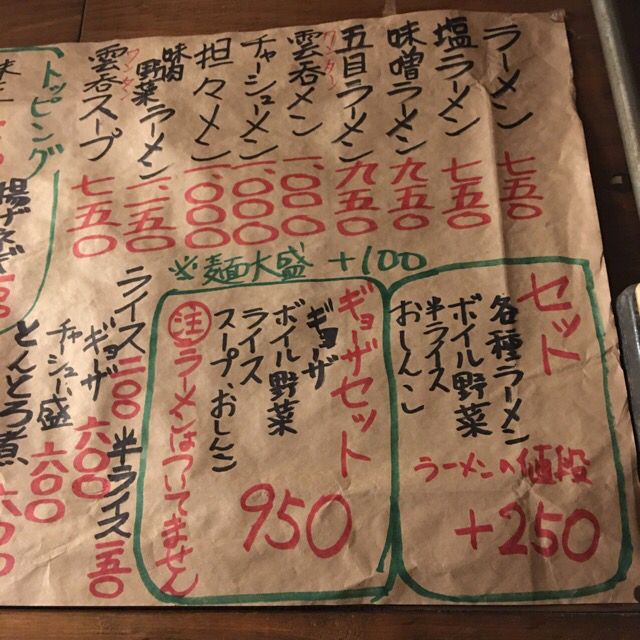 ラーメン 七五〇
塩ラーメン 七五〇
味噌ラーメン 九五〇
五目ラーメン 九五〇
雲呑メン ワンタン 一、〇〇〇
チャーシューメン 一、〇〇〇
担々メン 一、〇〇〇
野菜ラーメン 一、一五〇
雲呑スープ ワンタン 七五〇
※麺大盛 +100
セット
各種ラーメン
ボイル野菜
半ライス
おしんこ
ラーメンの値段
+250
ギョーザセット
ギョーザ
ボイル野菜
ライス
スープ、おしんこ
950
注 ラーメンはついてません
ライス 二〇〇
半ライス 一五〇
ギョーザ 六〇〇
チャシュー盛 六〇〇
とんとろ煮
トッピング
揚げネギ